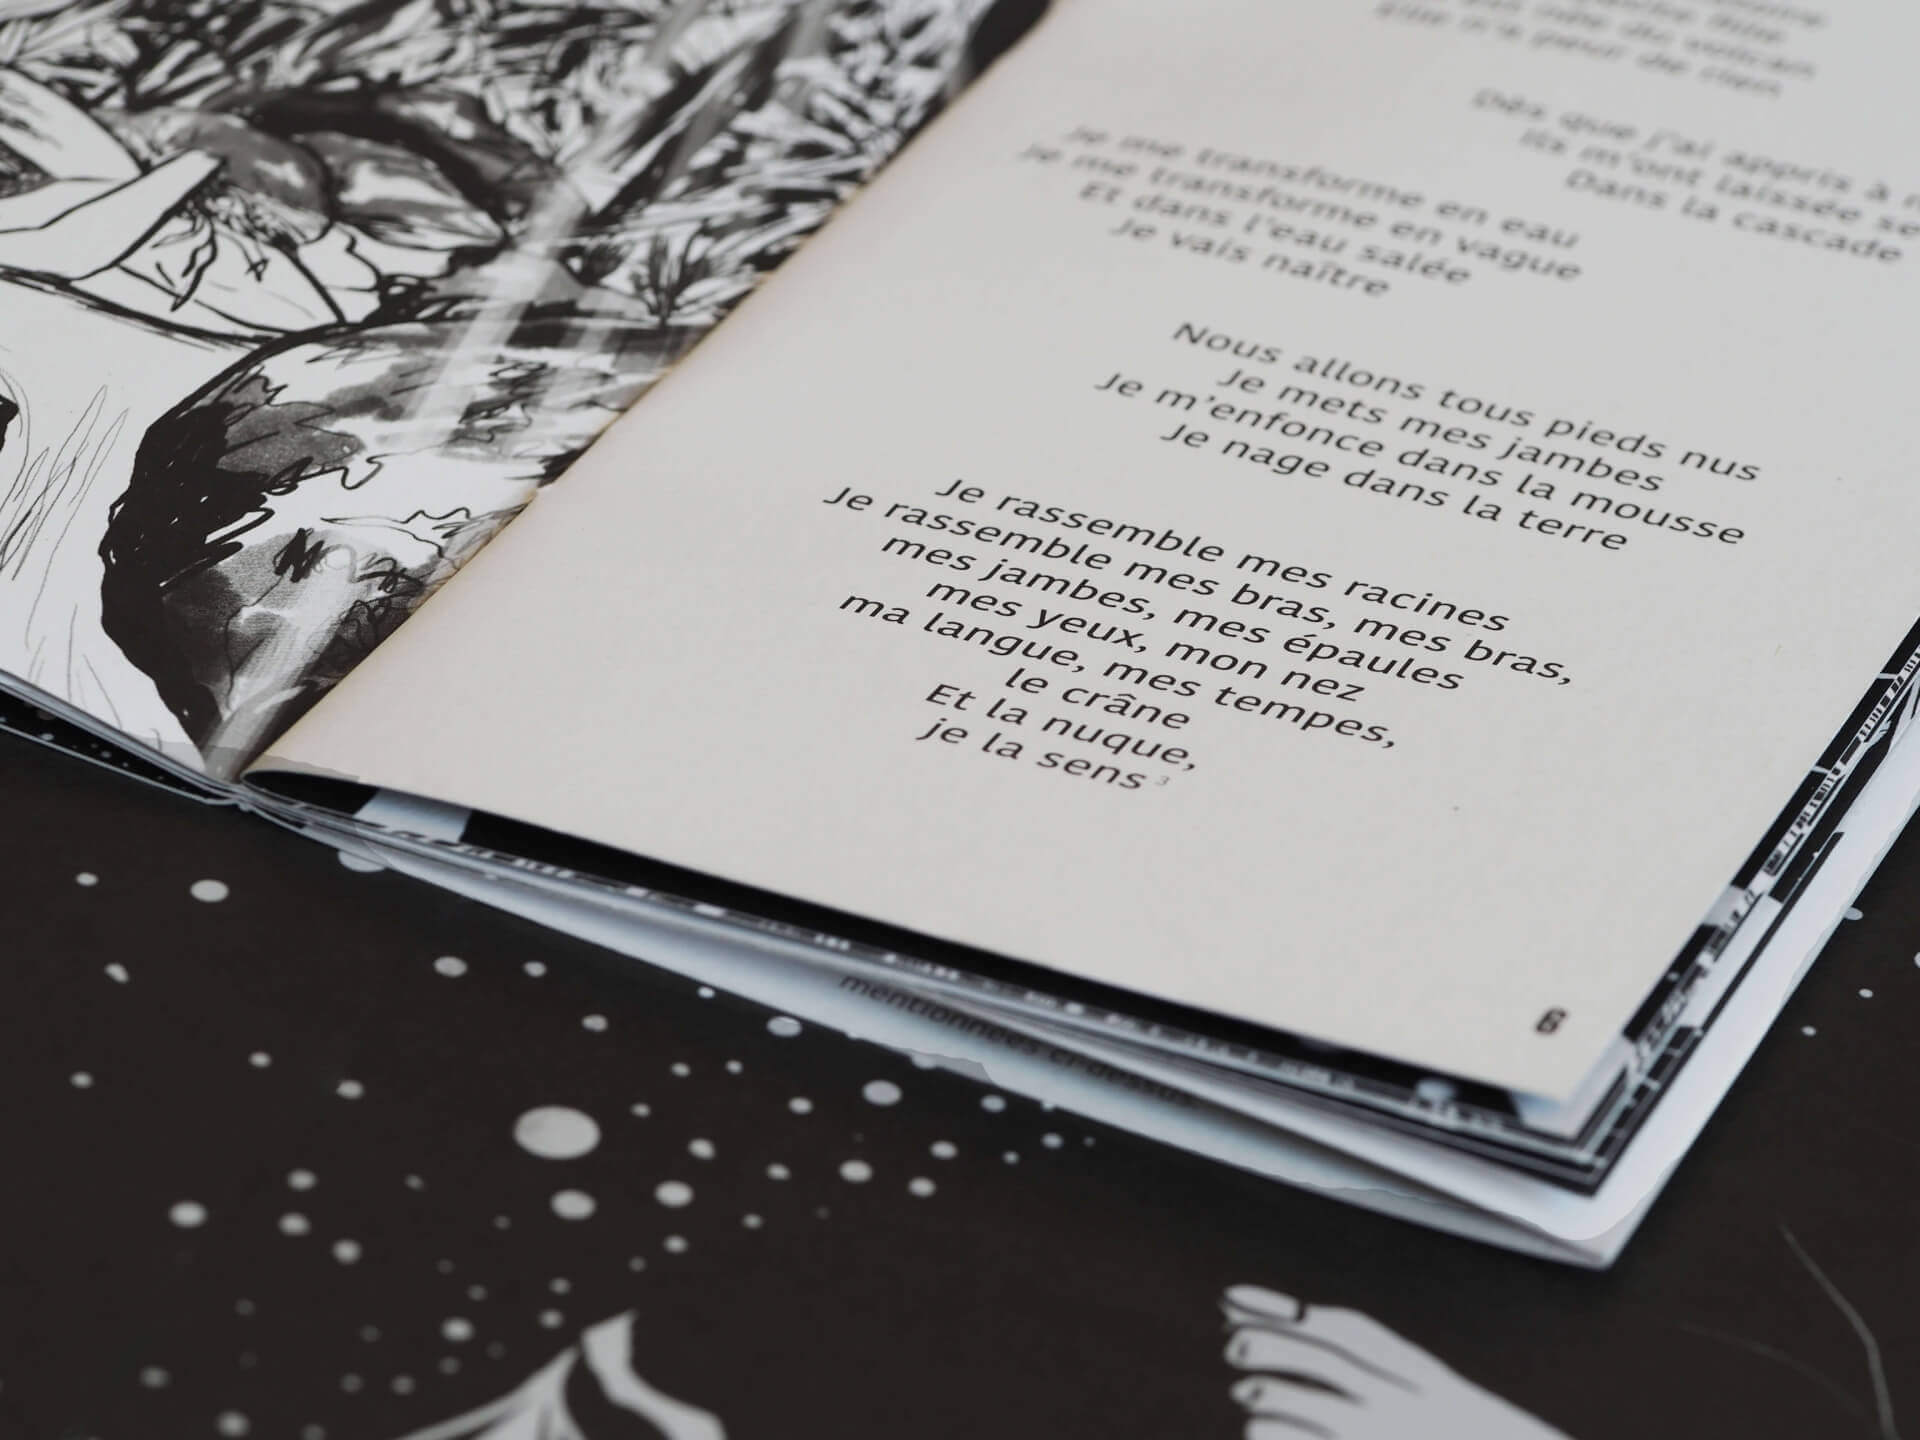 Elle n'a peur de rien
Dès que j'ai appris à
Ils m'ont laissée
Dans la cascade
Je me transforme en eau
Je me transforme en vague
Et dans l'eau salée
Je vais naître
Nous allons tous pieds nus
Je mets mes jambes
Je m'enfonce dans la mousse
Je nage dans la terre
Je rassemble mes racines
Je rassemble mes bras, mes bras,
mes jambes, mes épaules
mes yeux, mon nez
ma langue, mes tempes,
le crâne
Et la nuque,
je la sens 3
6
mentionnées ci-dessus